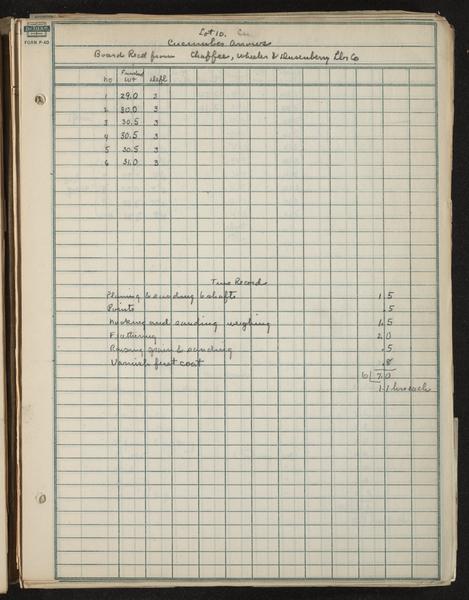 FORM P-40
Lot 10. Cu
Cucumber Arrows
Board Recd from Chaffee, Wheeler & Dusenberry Lbr Co
No Finished Wt Defl
1 29.0 3
2 30.0 3
3 30.5 3
4 30.5 3
5 30.5 3
6 31.0 3
Time Record
Planing & sanding 6 shafts 1.5
Points .5
Nocking and sanding weighing 1.5
Feathering 2.0
Raising grain & sanding .5
Varnish first coat .8
6 7.0
1.1 hrs each